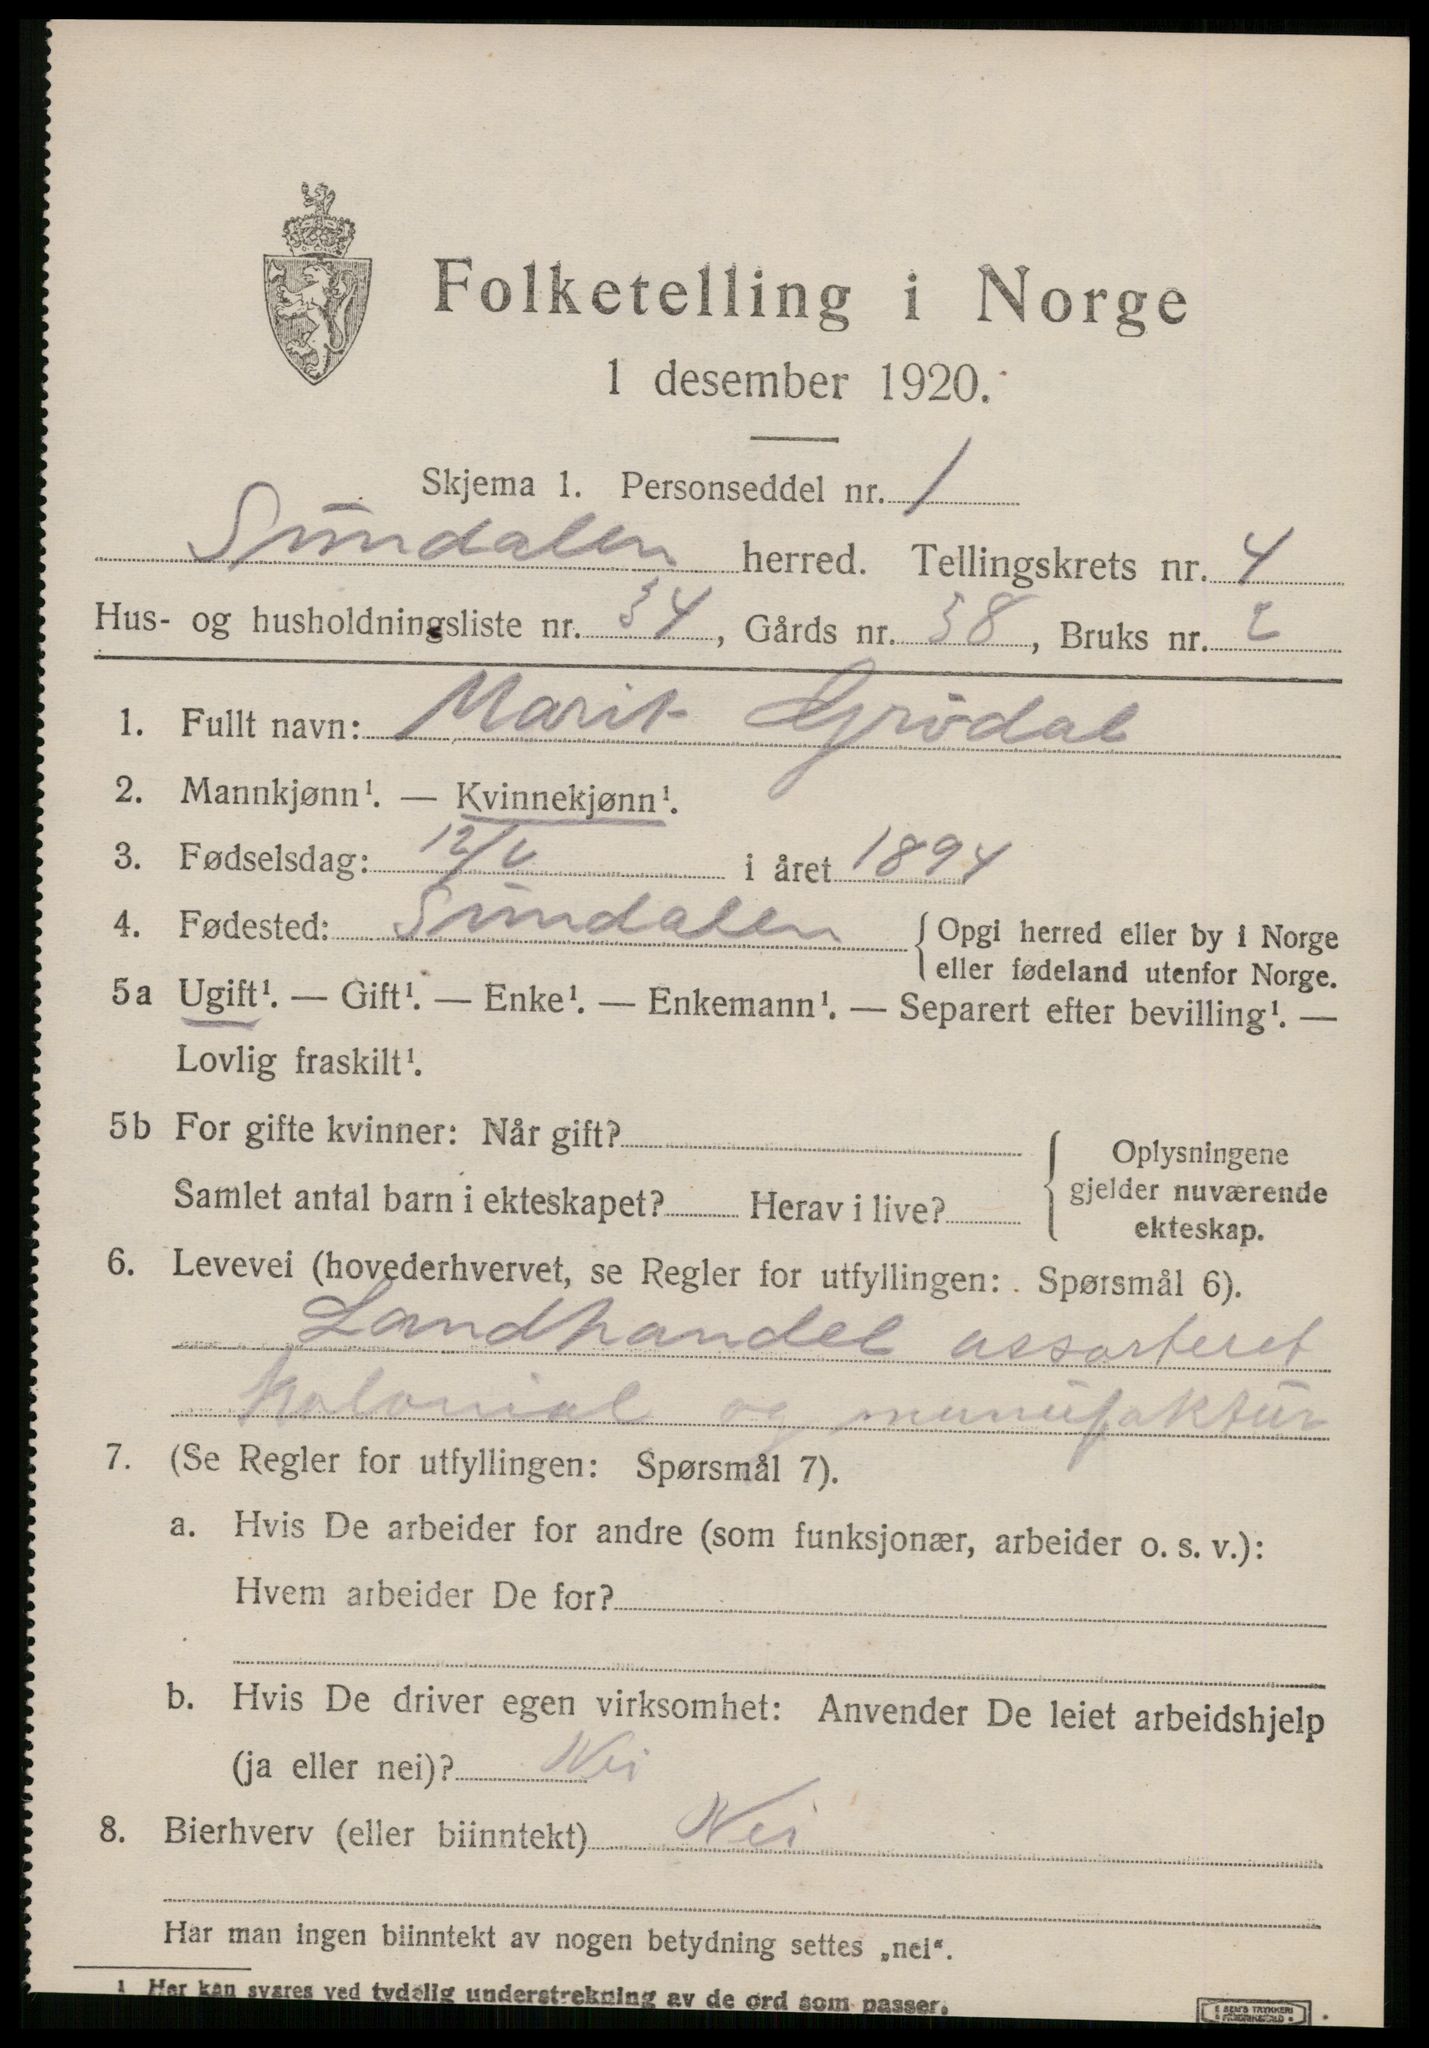 Folketelling i Norge
1 desember 1920.
Skjema 1. Personseddel nr. 1
Sundalen herred. Tellingskrets nr. 4
Hus- og husholdningsliste nr. 34, Gårds nr. 38, Bruks nr. 2
1. Fullt navn: Marit Grödal
2. Mannkjønn¹. — Kvinnekjønn¹.
3. Fødselsdag: 12/V i året 1894
4. Fødested: Sundalen { Opgi herred eller by i Norge
eller fødeland utenfor Norge.
5a Ugift¹. — Gift¹. — Enke¹. — Enkemann¹. — Separert efter bevilling¹. —
Lovlig fraskilt¹.
5b For gifte kvinner: Når gift?
Samlet antal barn i ekteskapet? Herav i live?
{ Oplysningene
gjelder nuværende
ekteskap.
6. Levevei (hovederhvervet, se Regler for utfyllingen: Spørsmål 6).
Landhandel assorteret
kolonial og manufaktur
7. (Se Regler for utfyllingen: Spørsmål 7).
a. Hvis De arbeider for andre (som funksjonær, arbeider o. s. v.):
Hvem arbeider De for?
b. Hvis De driver egen virksomhet: Anvender De leiet arbeidshjelp
(ja eller nei)? Nei
8. Bierhverv (eller biinntekt) Nei
Har man ingen biinntekt av nogen betydning settes „nei“.
1 Her kan svares ved tydelig understrekning av de ord som passer.